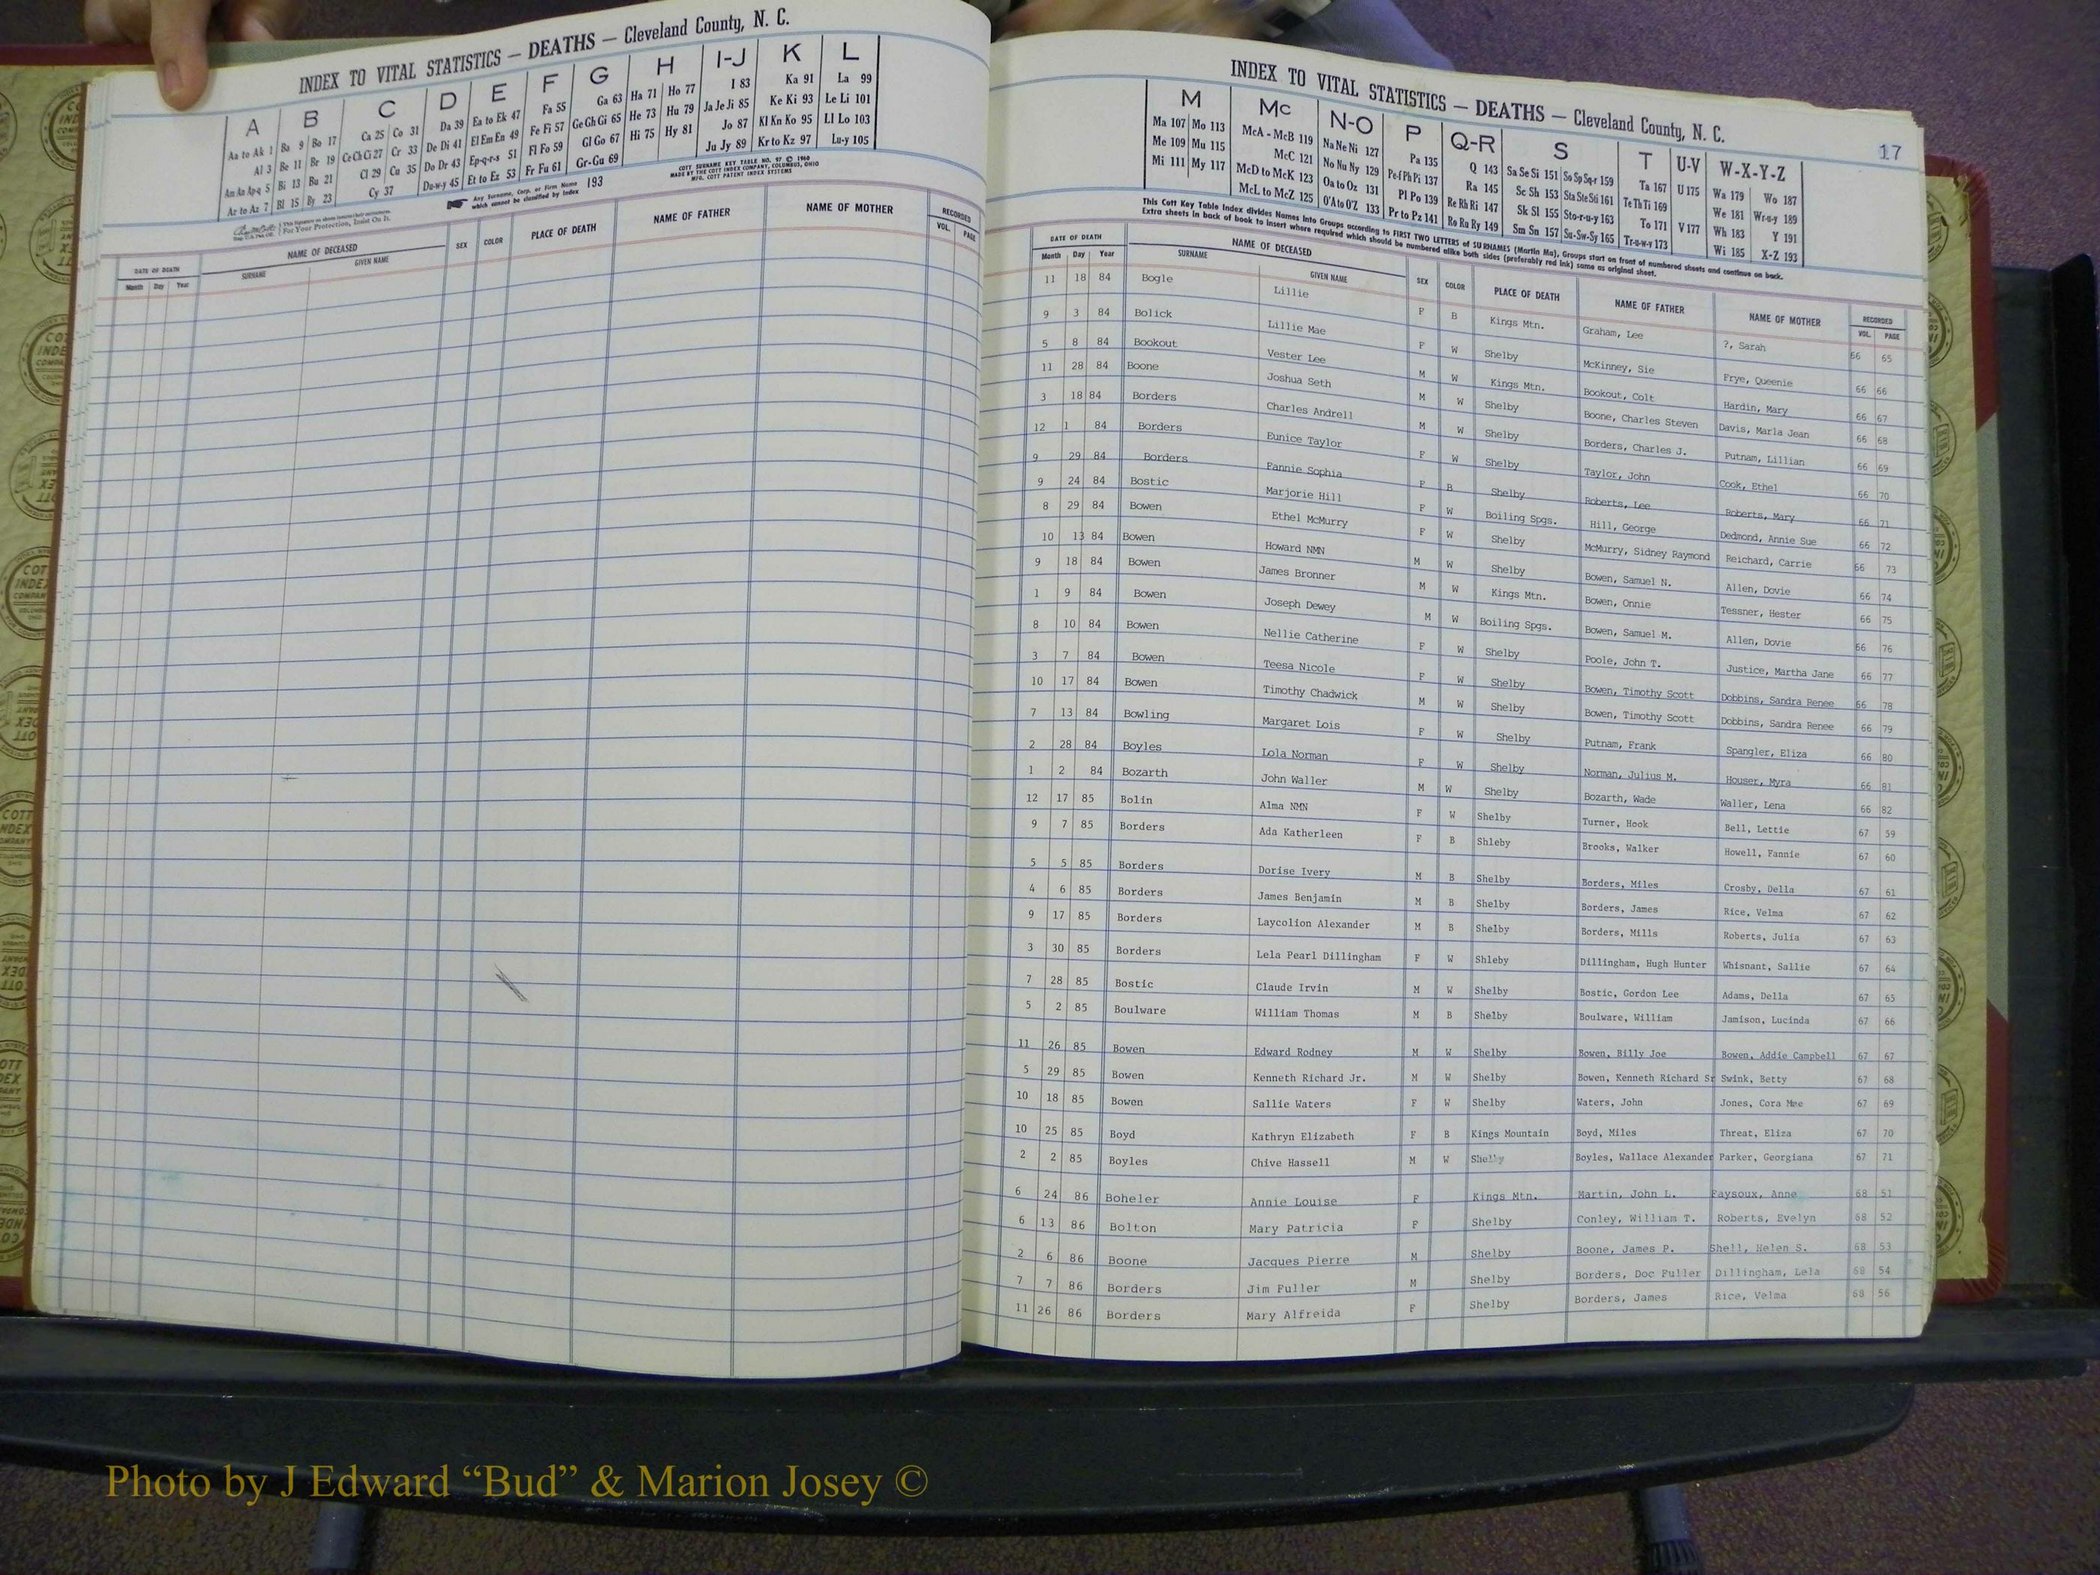 INDEX TO VITAL STATISTICS — DEATHS — Cleveland County, N. C.
A B C D E F G H I-J K L
Aa to Ak 1 Ba 9 Bo 17 Ca 25 Co 31 Da 39 Ea to Ek 47 Fa 55 Ga 63 Ha 71 Ho 77 I 83 Ka 91 La 99
Al 3 Be 11 Br 19 Ce Ch Ci 27 Cr 33 De Di 41 El Em En 49 Fe Fi 57 Ge Gh Gi 65 He 73 Hu 79 Ja Je Ji 85 Ke Ki 93 Le Li 101
Am An Ap-q 5 Bi 13 Bu 21 Cl 29 Cu 35 Do Dr 43 Ep-q-r-s 51 Fl Fo 59 Gl Go 67 Hi 75 Hy 81 Jo 87 Kl Kn Ko 95 Ll Lo 103
Ar to Az 7 Bl 15 By 23 Cy 37 Du-w-y 45 Et to Ez 53 Fr Fu 61 Gr-Gu 69 Ju Jy 89 Kr to Kz 97 Lu-y 105
For Your Protection, Insist On It.
Any Surname, Corp. or Firm Name which cannot be classified by Index 193
COTT SURNAME KEY TABLE NO. 97 © 1960
MADE BY THE COTT INDEX COMPANY, COLUMBUS, OHIO
MFG. COTT PATENT INDEX SYSTEMS
DATE OF DEATH NAME OF DECEASED SEX COLOR PLACE OF DEATH NAME OF FATHER NAME OF MOTHER RECORDED
Month Day Year SURNAME GIVEN NAME VOL. PAGE
INDEX TO VITAL STATISTICS — DEATHS — Cleveland County, N. C.
17
M Mc N-O P Q-R S T U-V W-X-Y-Z
Ma 107 Mo 113 McA - McB 119 Na Ne Ni 127 Pa 135 Q 143 Sa Se Si 151 So Sp Sq-r 159 Ta 167 U 175 Wa 179 Wo 187
Me 109 Mu 115 McC 121 No Nu Ny 129 Pe-f Ph Pi 137 Ra 145 Sc Sh 153 Sta Ste Sti 161 Te Th Ti 169 We 181 Wr-u-y 189
Mi 111 My 117 McD to McK 123 Oa to Oz 131 Pl Po 139 Re Rh Ri 147 Sk Sl 155 Sto-r-u-y 163 To 171 V 177 Wh 183 Y 191
McL to McZ 125 O'A to O'Z 133 Pr to Pz 141 Ro Ru Ry 149 Sm Sn 157 Su-Sw-Sy 165 Tr-u-w-y 173 Wi 185 X-Z 193
This Cott Key Table Index divides Names into Groups according to FIRST TWO LETTERS of SURNAMES (Martin Ma), Groups start on front of numbered sheets and continue on back.
Extra sheets in back of book to insert where required which should be numbered alike both sides (preferably red ink) same as original sheet.
DATE OF DEATH NAME OF DECEASED SEX COLOR PLACE OF DEATH NAME OF FATHER NAME OF MOTHER RECORDED
Month Day Year SURNAME GIVEN NAME VOL. PAGE
11 18 84 Bogle Lillie F B Kings Mtn. Graham, Lee ?, Sarah 66 65
9 3 84 Bolick Lillie Mae F W Shelby McKinney, Sie Frye, Queenie 66 66
5 8 84 Bookout Vester Lee M W Kings Mtn. Bookout, Colt Hardin, Mary 66 67
11 28 84 Boone Joshua Seth M W Shelby Boone, Charles Steven Davis, Marla Jean 66 68
3 18 84 Borders Charles Andrell M W Shelby Borders, Charles J. Putnam, Lillian 66 69
12 1 84 Borders Eunice Taylor F W Shelby Taylor, John Cook, Ethel 66 70
9 29 84 Borders Fannie Sophia F B Shelby Roberts, Lee Roberts, Mary 66 71
9 24 84 Bostic Marjorie Hill F W Boiling Spgs. Hill, George Dedmond, Annie Sue 66 72
8 29 84 Bowen Ethel McMurry F W Shelby McMurry, Sidney Raymond Reichard, Carrie 66 73
10 13 84 Bowen Howard NMN M W Shelby Bowen, Samuel N. Allen, Dovie 66 74
9 18 84 Bowen James Bronner M W Kings Mtn. Bowen, Onnie Tessner, Hester 66 75
1 9 84 Bowen Joseph Dewey M W Boiling Spgs. Bowen, Samuel M. Allen, Dovie 66 76
8 10 84 Bowen Nellie Catherine F W Shelby Poole, John T. Justice, Martha Jane 66 77
3 7 84 Bowen Teesa Nicole F W Shelby Bowen, Timothy Scott Dobbins, Sandra Renee 66 78
10 17 84 Bowen Timothy Chadwick M W Shelby Bowen, Timothy Scott Dobbins, Sandra Renee 66 79
7 13 84 Bowling Margaret Lois F W Shelby Putnam, Frank Spangler, Eliza 66 80
2 28 84 Boyles Lola Norman F W Shelby Norman, Julius M. Houser, Myra 66 81
1 2 84 Bozarth John Waller M W Shelby Bozarth, Wade Waller, Lena 66 82
12 17 85 Bolin Alma NMN F W Shelby Turner, Hook Bell, Lettie 67 59
9 7 85 Borders Ada Katherleen F B Shleby Brooks, Walker Howell, Fannie 67 60
5 5 85 Borders Dorise Ivery M B Shelby Borders, Miles Crosby, Della 67 61
4 6 85 Borders James Benjamin M B Shelby Borders, James Rice, Velma 67 62
9 17 85 Borders Laycolion Alexander M B Shelby Borders, Mills Roberts, Julia 67 63
3 30 85 Borders Lela Pearl Dillingham F W Shleby Dillingham, Hugh Hunter Whisnant, Sallie 67 64
7 28 85 Bostic Claude Irvin M W Shelby Bostic, Gordon Lee Adams, Della 67 65
5 2 85 Boulware William Thomas M B Shelby Boulware, William Jamison, Lucinda 67 66
11 26 85 Bowen Edward Rodney M W Shelby Bowen, Billy Joe Bowen, Addie Campbell 67 67
5 29 85 Bowen Kenneth Richard Jr. M W Shelby Bowen, Kenneth Richard Sr Swink, Betty 67 68
10 18 85 Bowen Sallie Waters F W Shelby Waters, John Jones, Cora Mae 67 69
10 25 85 Boyd Kathryn Elizabeth F B Kings Mountain Boyd, Miles Threat, Eliza 67 70
2 2 85 Boyles Chive Hassell M W Shelby Boyles, Wallace Alexander Parker, Georgiana 67 71
6 24 86 Boheler Annie Louise F Kings Mtn. Martin, John L. Faysoux, Anne 68 51
6 13 86 Bolton Mary Patricia F Shelby Conley, William T. Roberts, Evelyn 68 52
2 6 86 Boone Jacques Pierre M Shelby Boone, James P. Shell, Helen S. 68 53
7 7 86 Borders Jim Fuller M Shelby Borders, Doc Fuller Dillingham, Lela 68 54
11 26 86 Borders Mary Alfreida F Shelby Borders, James Rice, Velma 68 56
Photo by J Edward “Bud” & Marion Josey ©